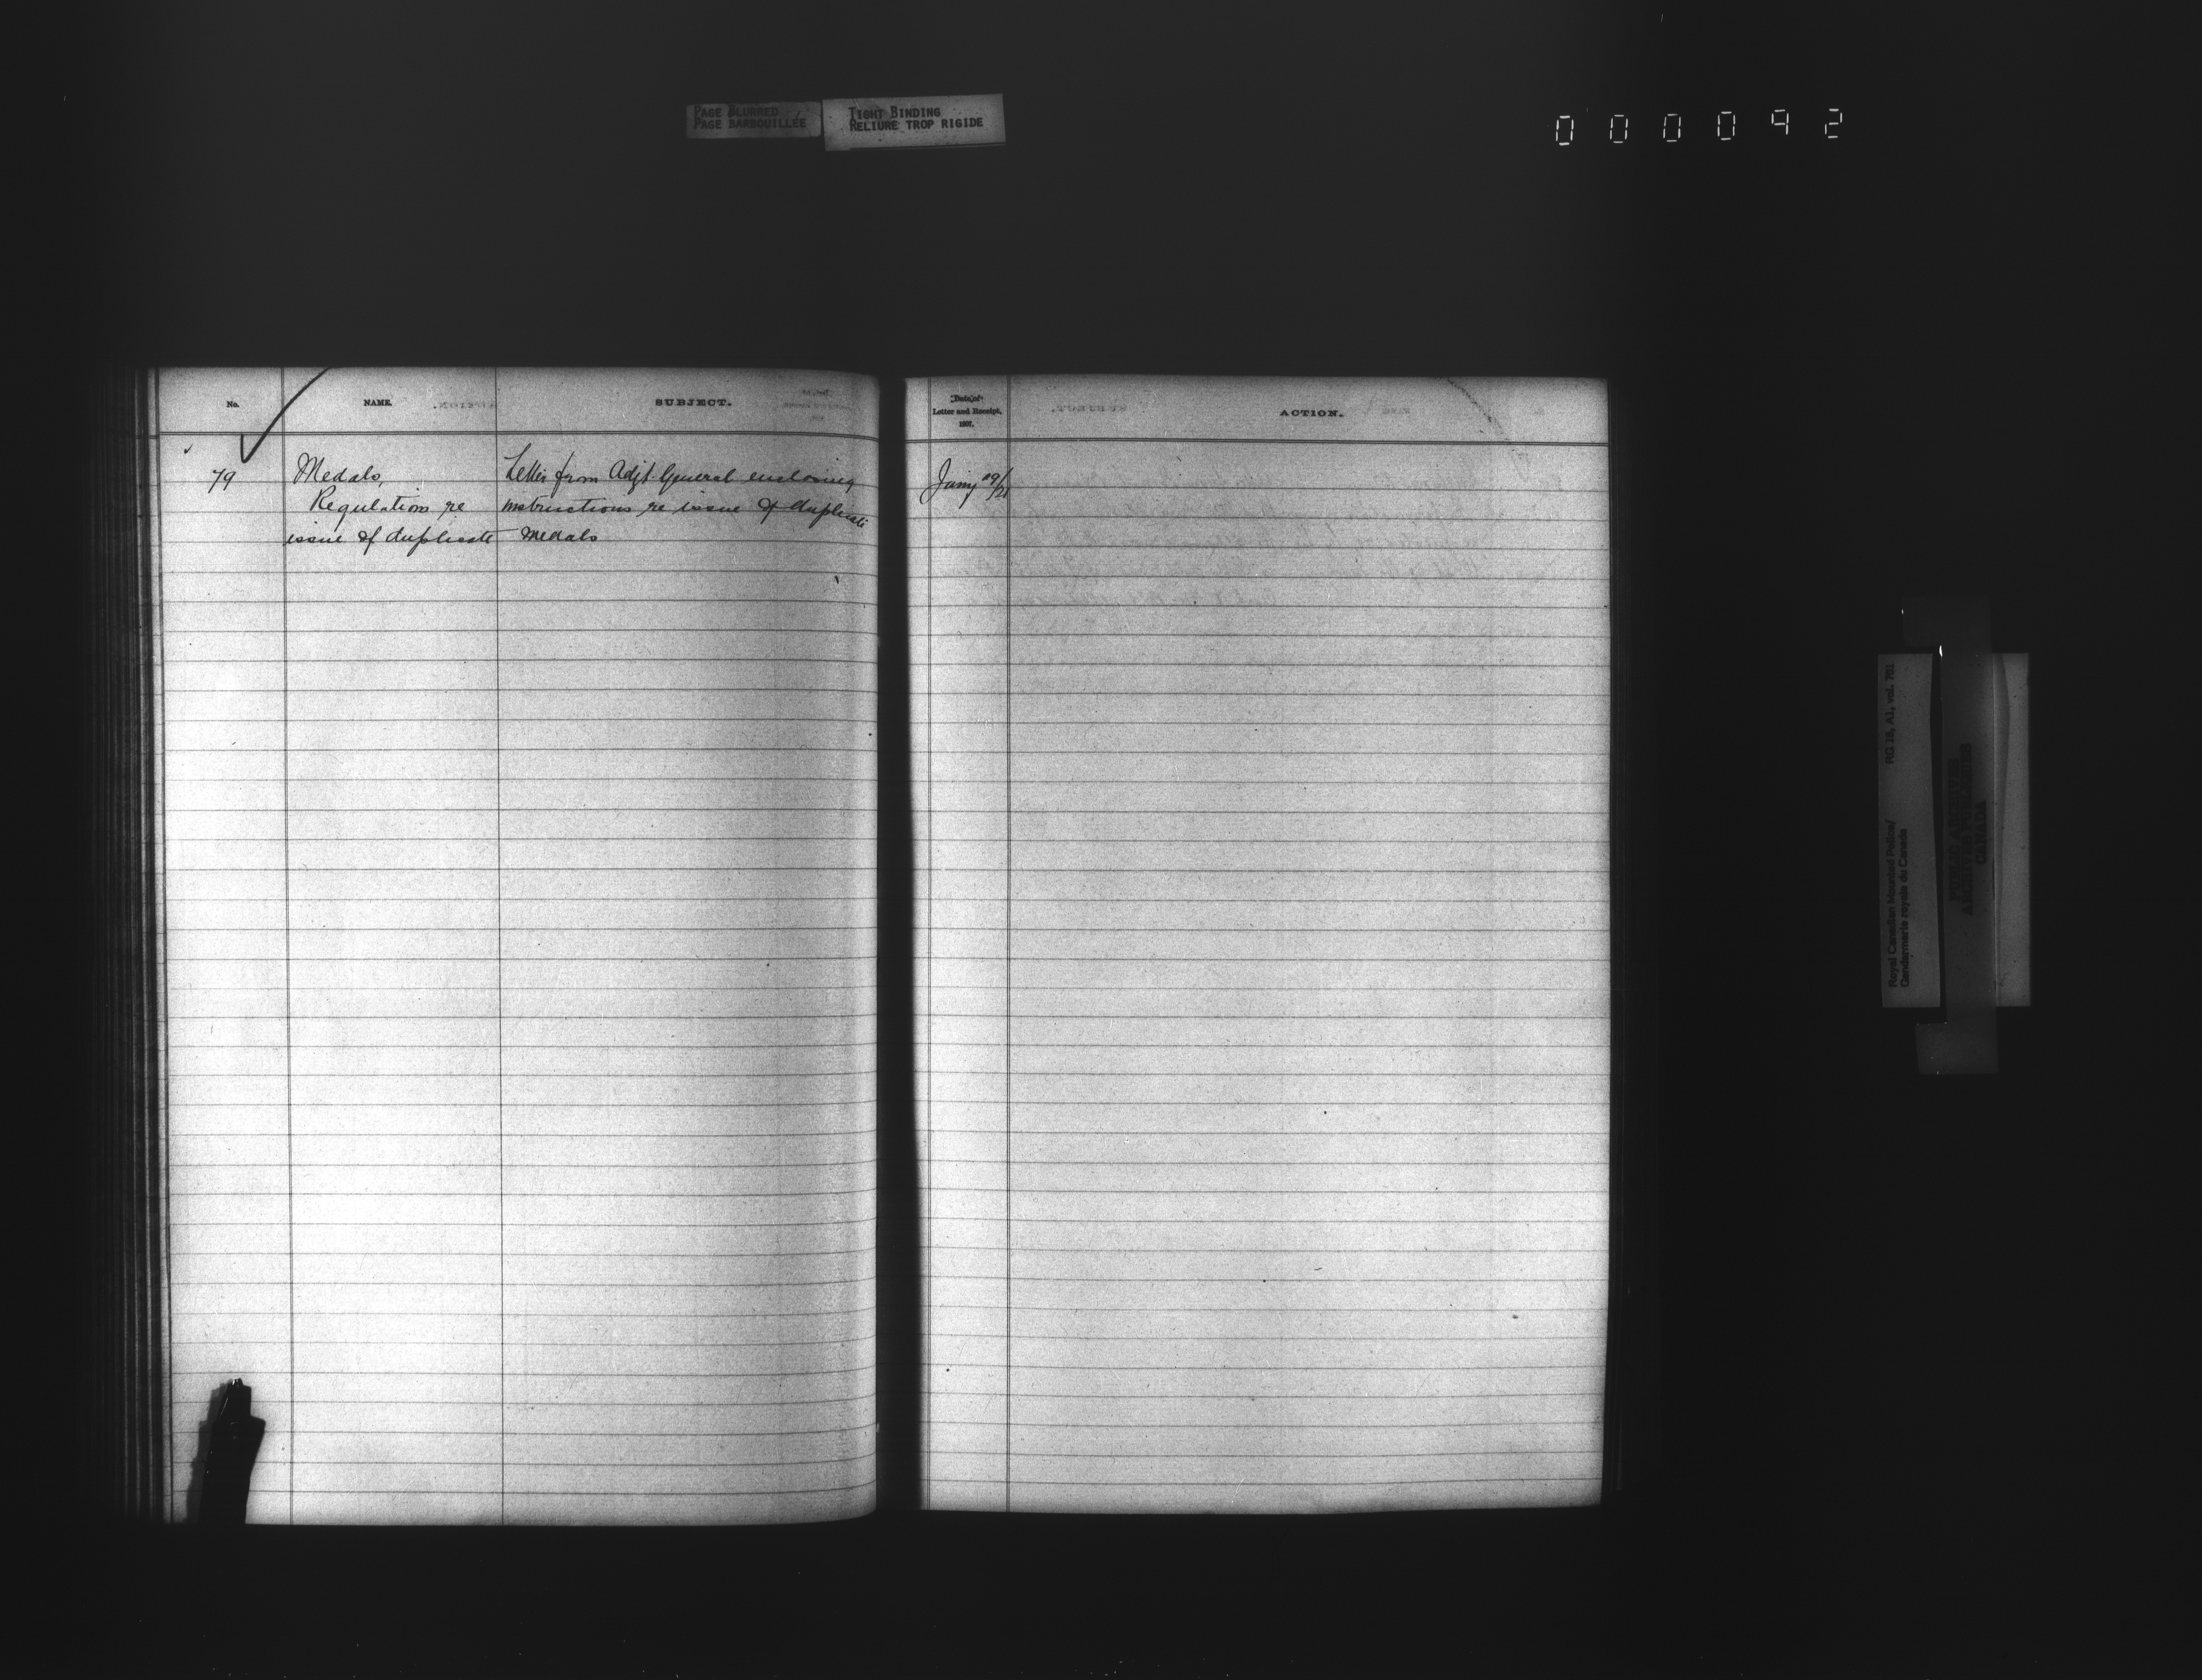 PAGE BLURRED
PAGE BARBOUILLÉE
TIGHT BINDING
RELIURE TROP RIGIDE
000092
No.
NAME.
SUBJECT.
79
Medals,
Regulations re
issue of duplicate
Letter from Adjt. General enclosing
instructions re issue of duplicate
medals
Date of
Letter and Receipt.
1907.
ACTION.
Jany 19/21
Royal Canadian Mounted Police/
Gendarmerie royale du Canada
RG 18, A1, vol. 781
PUBLIC ARCHIVES
ARCHIVES PUBLIQUES
CANADA